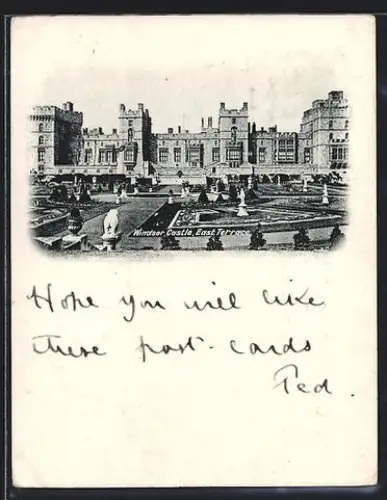 Windsor Castle, East Terrace
Hope you will like
these post-cards
Ted.